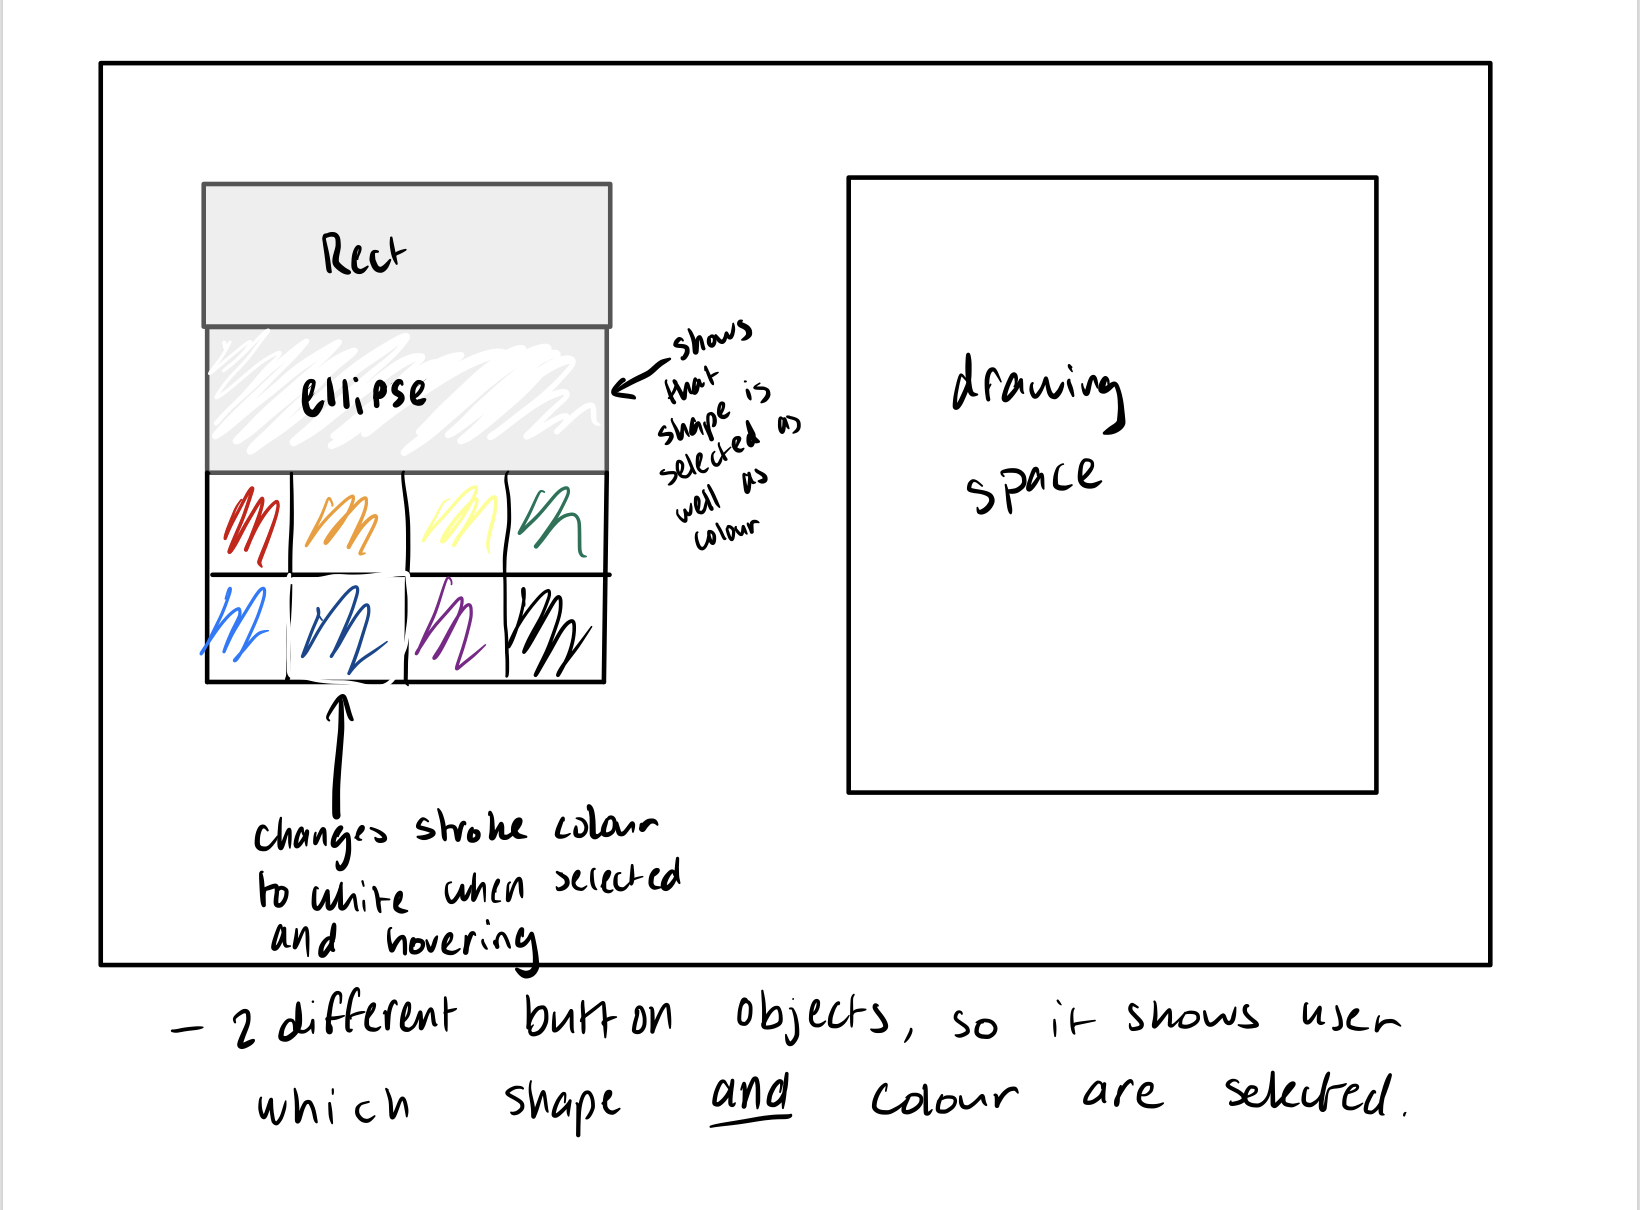 Rect
ellipse
shows
that
shape is
selected as
well as
colour
drawing
space
changes stroke colour
to white when selected
and hovering
- 2 different button objects, so it shows user
which shape and colour are selected.